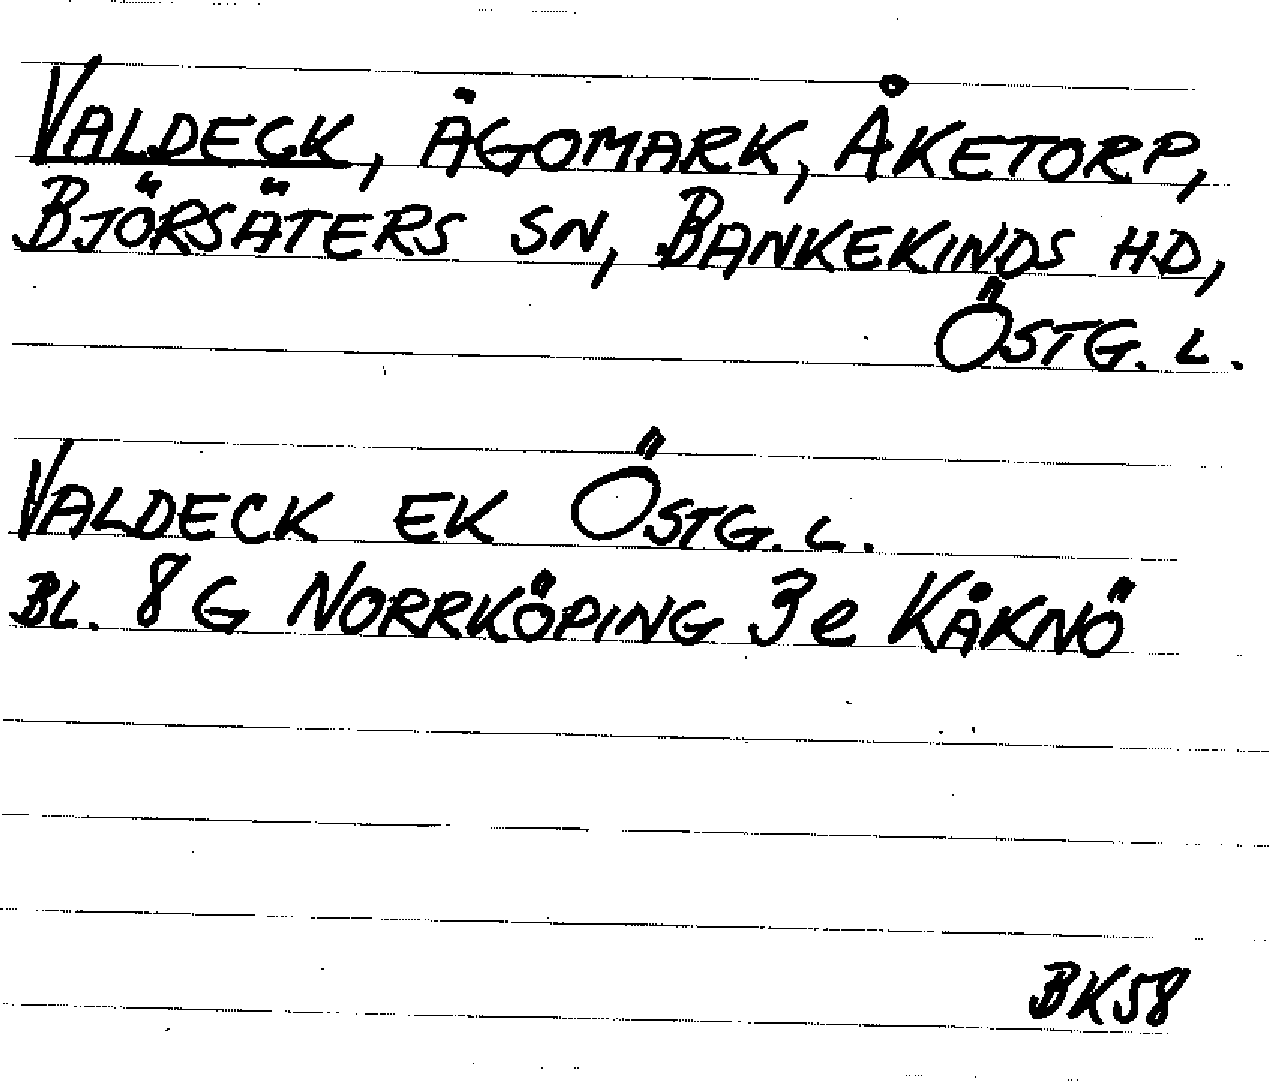 VALDECK, ÄGOMARK, ÅKETORP,
BJÖRSÄTERS SN, BANKEKINDS HD,
ÖSTG. L.
VALDECK EK ÖSTG. L.
BL. 8 G NORRKÖPING 3e KÅKNÖ
BK58